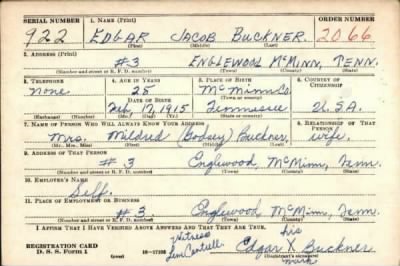 SERIAL NUMBER 1. NAME (Print) ORDER NUMBER
922 EDGAR JACOB BUCKNER 2066
(First) (Middle) (Last)
2. ADDRESS (Print)
#3 ENGLEWOOD McMINN, TENN.
(Number and street or R. F. D. number) (Town) (County) (State)
3. TELEPHONE 4. AGE IN YEARS 5. PLACE OF BIRTH 6. COUNTRY OF CITIZENSHIP
none 25 McMinn Co.
DATE OF BIRTH (Town or county)
Feb 17, 1915 Tennessee U.S.A.
(Exchange) (Number) (Mo.) (Day) (Yr.) (State or country)
7. NAME OF PERSON WHO WILL ALWAYS KNOW YOUR ADDRESS 8. RELATIONSHIP OF THAT PERSON
Mrs. Mildred (Godsey) Buckner, wife.
(Mr., Mrs., Miss) (First) (Middle) (Last)
9. ADDRESS OF THAT PERSON
#3. Englewood, McMinn, Tenn.
(Number and street or R. F. D. number) (Town) (County) (State)
10. EMPLOYER'S NAME
Self.
11. PLACE OF EMPLOYMENT OR BUSINESS
#3. Englewood McMinn, Tenn.
(Number and street or R. F. D. number) (Town) (County) (State)
I AFFIRM THAT I HAVE VERIFIED ABOVE ANSWERS AND THAT THEY ARE TRUE.
REGISTRATION CARD Witness his
D. S. S. Form 1 (over) Cantrell Edgar X Buckner
mark